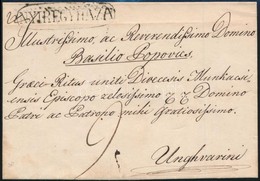 NYIREGYHÁZA
Illustrissimo, ac Reverendissimo Domino
Basilio Popovics
Græci-Ritus uniti Diœcesis Munkacsi-
ensis Episcopo zelosissimo Domino
Patre ac Patrono mihi Gratiosissimo.
Unghvarini